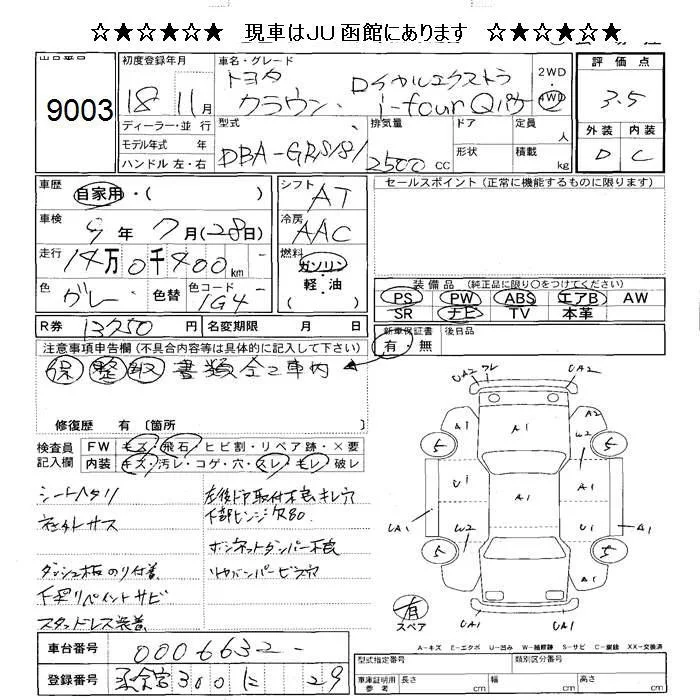 ☆★☆★☆★ 現車はJU函館にあります ☆★☆★☆★
9003
初度登録年月 18 11月
車名・グレード トヨタ クラウン ロイヤルエクストラ i-four Qパケ
2WD 4WD
評価点 3.5
外装 内装
D C
ディーラー・並行
モデル年式 年
ハンドル 左・右
型式 DBA-GRS181
排気量 2500 CC
ドア 定員 人
形状 積載 kg
車歴 自家用・( )
車検 9年 7月(-28日)
走行 14万0千400 km
色 グレー 色替 色コード 1G4
シフト AT
冷房 AAC
燃料 ガソリン・軽・油
セールスポイント (正常に機能するものに限ります)
装備品 (純正品に限り○をつけてください)
PS PW ABS エアB AW
SR ナビ TV 本革
R券 13250円 名変期限 月 日
新車保証書 有・無 後日品
注意事項申告欄 (不具合内容等は具体的に記入して下さい)
保 整 取 書類全て車内
修復歴 有 〔箇所
検査員記入欄
FW キズ・飛石・ヒビ割・リペア跡・×要
内装 キズ・汚レ・コゲ・穴・スレ・キレ・破レ
シートヘタリ
社外レサス
ダッシュ板のり付着
下廻リペイントサビ
スタッドレス装着
左後ドア取付不良キレ穴
下部ヒンジ欠品
ボンネットダンパー不良
リヤバンパービス穴
UA2 フレ UA2
A1 A1 A2
W2
5 5
U1 A1 U1
UA1 W2 U1 A1
5 5
A1 A1
UA1
有
スペア
A-キズ E-エクボ U-凹み W-補修跡 S-サビ C-腐蝕 XX-交換済
車台番号 0006632-
登録番号 300 に 29
型式指定番号 類別区分番号
車庫証明用参考 長さ cm 幅 cm 高さ cm